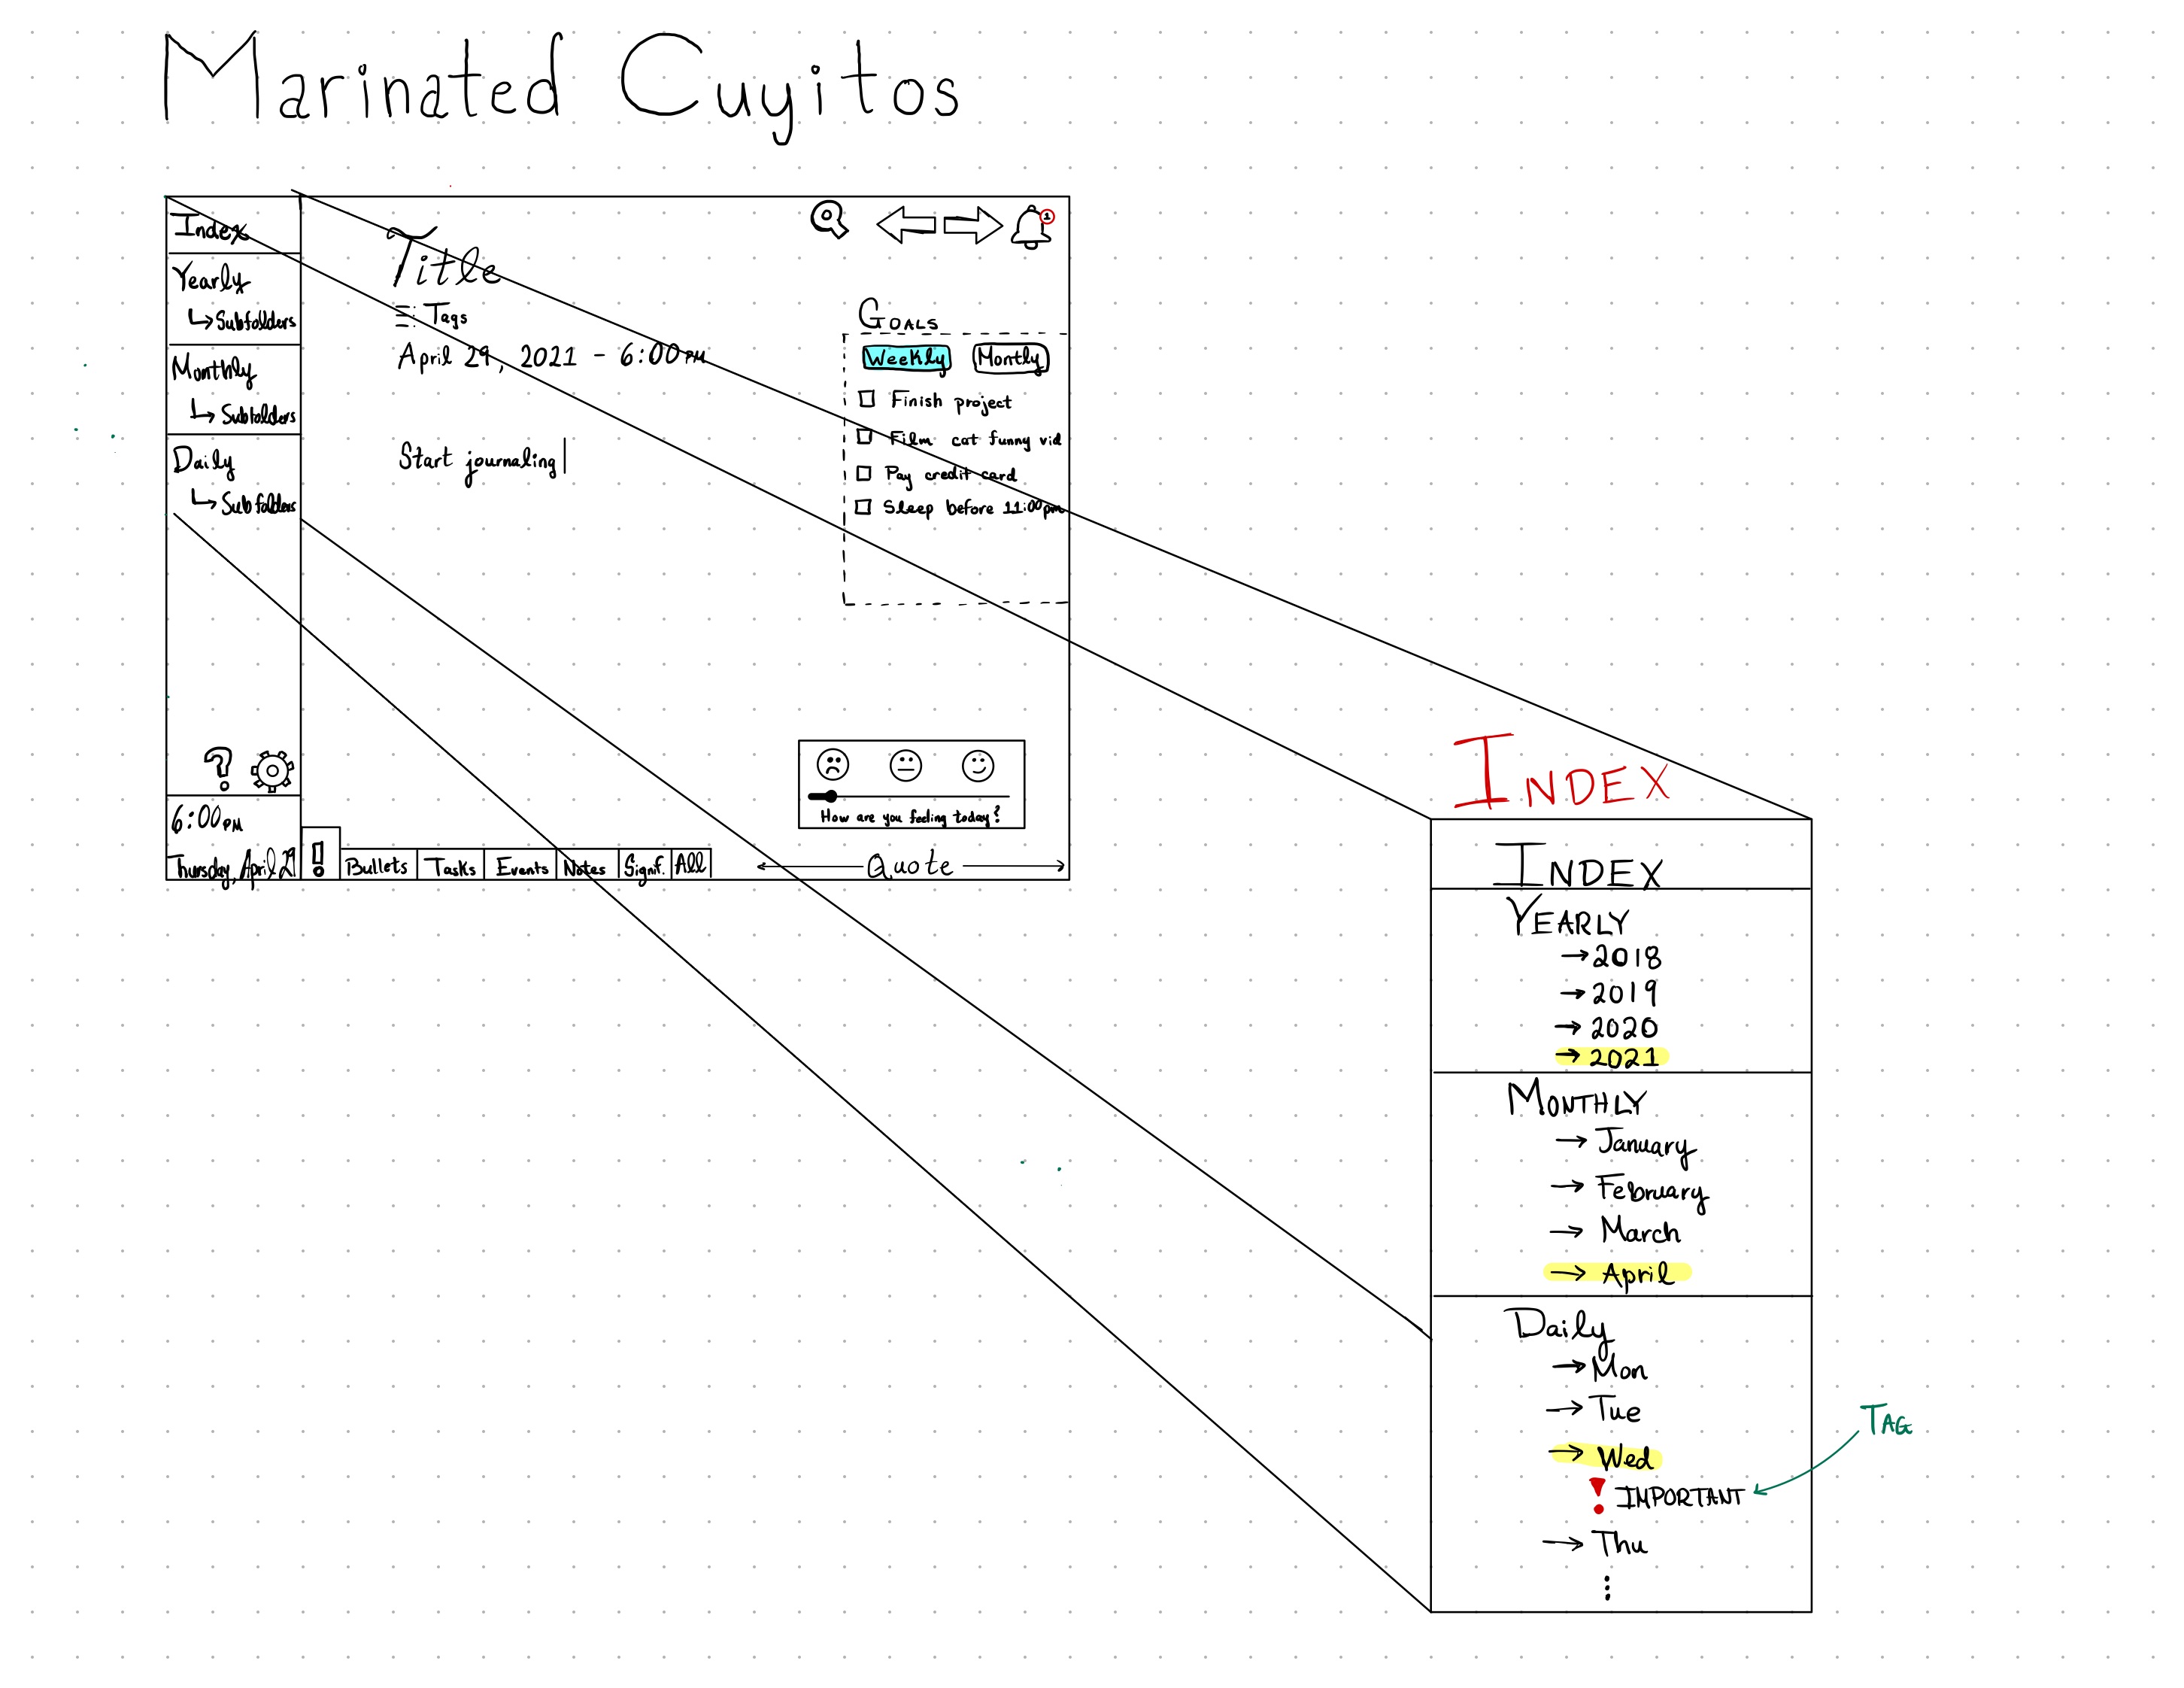 Marinated Cuyitos
Index
Yearly
Subfolders
Monthly
Subfolders
Daily
Subfolders
?
6:00 PM
Thursday, April 29
Title
Tags
April 29, 2021 - 6:00 PM
Start journaling|
1
GOALS
Weekly Montly
Finish project
Film cat funny vid
Pay credit card
Sleep before 11:00pm
How are you feeling today?
! Bullets Tasks Events Notes Signif. All
Quote
INDEX
INDEX
YEARLY
→ 2018
→ 2019
→ 2020
→ 2021
MONTHLY
→ January
→ February
→ March
→ April
Daily
→ Mon
→ Tue
→ Wed
! IMPORTANT
→ Thu
⋮
TAG